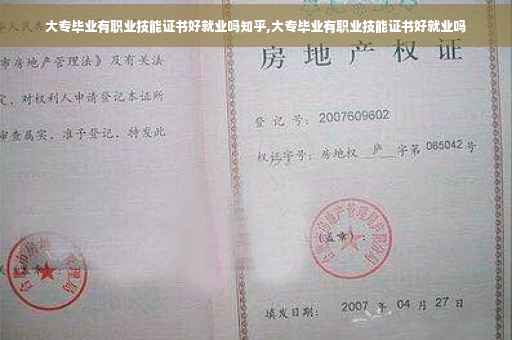 大专毕业有职业技能证书好就业吗知乎,大专毕业有职业技能证书好就业吗
市房地产管理法》及有关法
定，对权利人申请登记本证所
审查属实，准予登记，特发此
房地产权证
登记号：2007609602
权证字号：房地权 庐 字第 065042 号
(盖章)：
填发日期：2007 年 04 月 27 日